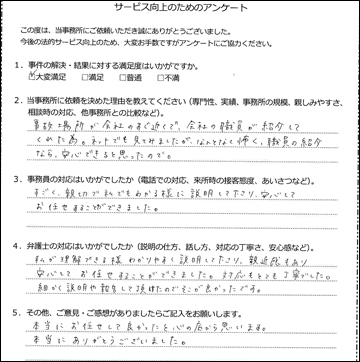 サービス向上のためのアンケート
この度は、当事務所にご依頼いただき誠にありがとうございました。
今後の法的サービス向上のため、大変お手数ですがアンケートにご協力ください。
1．事件の解決・結果に対する満足度はいかがですか。
☑大変満足　□満足　□普通　□不満
2．当事務所に依頼を決めた理由を教えてください（専門性、実績、事務所の規模、親しみやすさ、
相談時の対応、他事務所との比較など）。
場所が会社のすぐ近くで、会社の職員が紹介して
くれた為。ネットでも見てみましたが、なんとなく怖く、職員の紹介
なら、安心できると思ったので。
3．事務員の対応はいかがでしたか（電話での対応、来所時の接客態度、あいさつなど）。
すごく、親切で私でもわかる様に説明して下さり、安心して
お任せすることができました。
4．弁護士の対応はいかがでしたか（説明の仕方、話し方、対応の丁寧さ、安心感など）。
私が理解できる様わかりやすく説明して下さり、親近感もあり
安心してお任せすることができました。対応もとても丁寧でした。
細かく説明や報告して頂けたのでそこが良かったです。
5．その他、ご意見・ご感想がありましたらご記入をお願いします。
本当にお任せして良かったと心の底から思います。
本当にありがとうございました。